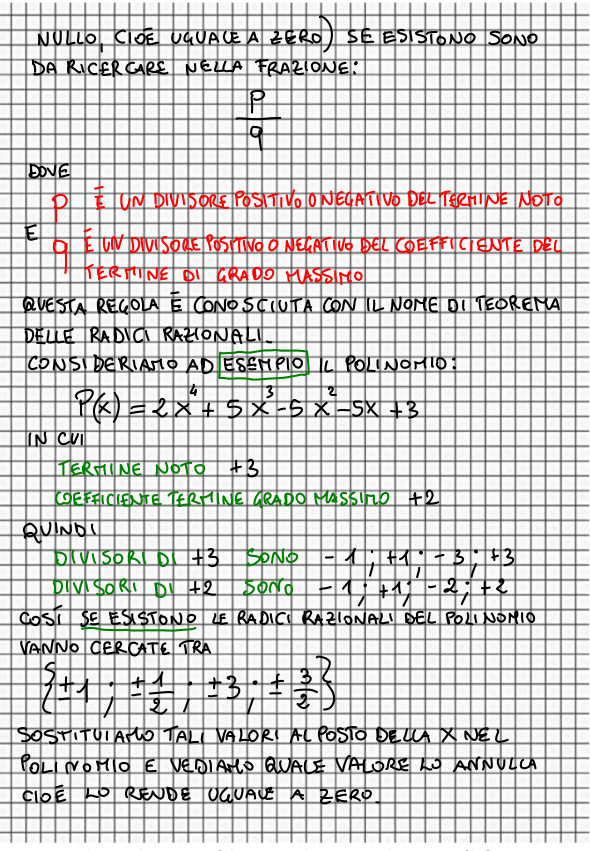 NULLO, CIOÈ UGUALE A ZERO) SE ESISTONO SONO
DA RICERCARE NELLA FRAZIONE:
P
q
DOVE
P È UN DIVISORE POSITIVO O NEGATIVO DEL TERMINE NOTO
E
q È UN DIVISORE POSITIVO O NEGATIVO DEL COEFFICIENTE DEL
TERMINE DI GRADO MASSIMO
QUESTA REGOLA È CONOSCIUTA CON IL NOME DI TEOREMA
DELLE RADICI RAZIONALI.
CONSIDERIAMO AD ESEMPIO IL POLINOMIO:
P(x) = 2x⁴ + 5x³ - 5x² - 5x + 3
IN CUI
TERMINE NOTO +3
COEFFICIENTE TERMINE GRADO MASSIMO +2
QUINDI
DIVISORI DI +3 SONO -1; +1; -3; +3
DIVISORI DI +2 SONO -1; +1; -2; +2
COSÌ SE ESISTONO LE RADICI RAZIONALI DEL POLINOMIO
VANNO CERCATE TRA
{±1; ±1/2; ±3; ±3/2}
SOSTITUIAMO TALI VALORI AL POSTO DELLA X NEL
POLINOMIO E VEDIAMO QUALE VALORE LO ANNULLA
CIOÈ LO RENDE UGUALE A ZERO.